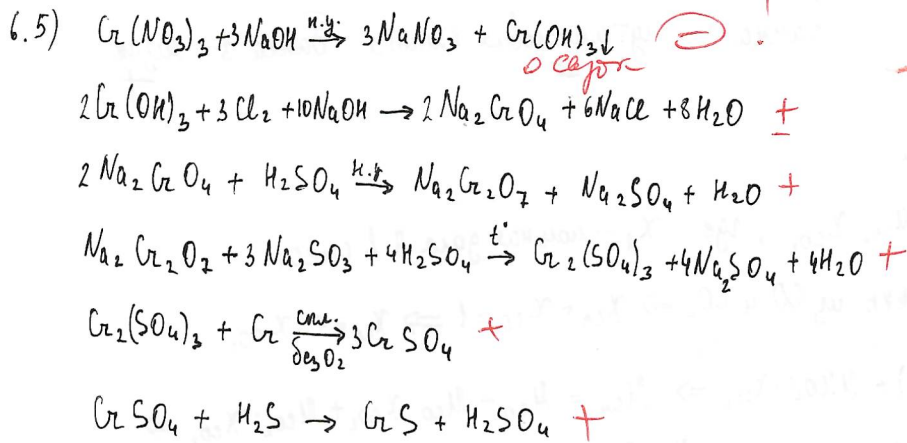 6.5) Cr(NO₃)₃ + 3NaOH —н.у.→ 3NaNO₃ + Cr(OH)₃↓ ⊖ !
осадок
2Cr(OH)₃ + 3Cl₂ + 10NaOH → 2Na₂CrO₄ + 6NaCl + 8H₂O +
2Na₂CrO₄ + H₂SO₄ —н.у.→ Na₂Cr₂O₇ + Na₂SO₄ + H₂O +
Na₂Cr₂O₇ + 3Na₂SO₃ + 4H₂SO₄ —t°→ Cr₂(SO₄)₃ + 4Na₂SO₄ + 4H₂O +
Cr₂(SO₄)₃ + Cr —спл. без O₂→ 3CrSO₄ +
CrSO₄ + H₂S → CrS + H₂SO₄ +